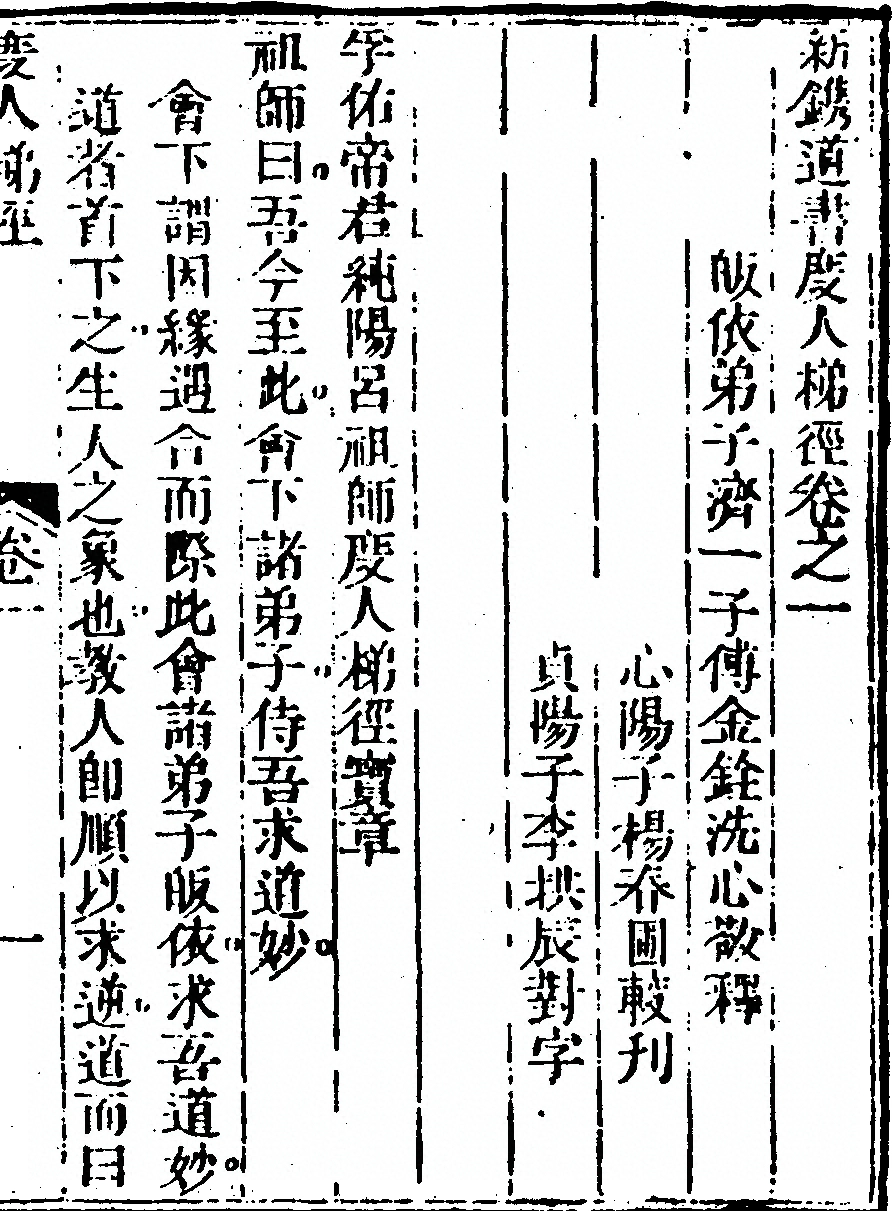 新鐫道書度人梯徑卷之一
皈依弟子濟一子傅金銓洗心敬釋
心陽子楊春圃較刊
貞陽子李拱辰對字
孚佑帝君純陽呂祖師度人梯徑寶章
祖師曰吾今至此會下諸弟子侍吾求道妙
會下謂因緣遇合而際此會諸弟子皈依求吾道妙
道者首下之生人之象也教人卽順以求逆道而曰
度人梯徑
卷一
一